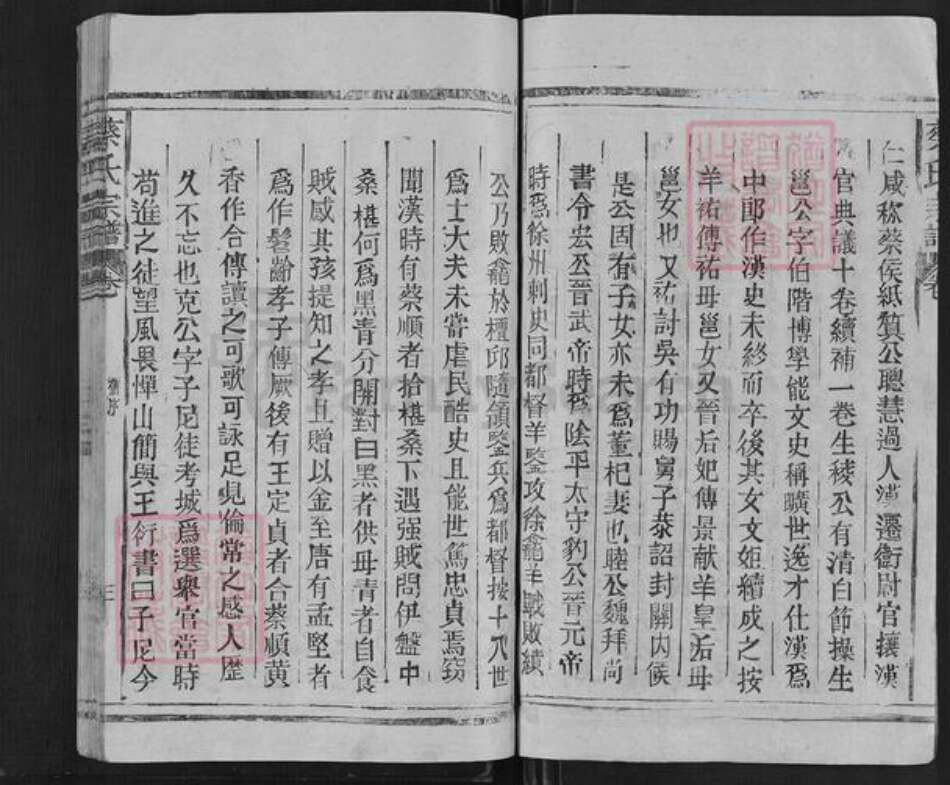 仁咸称蔡侯紙質公聰慧過人漢遷衛尉官攘漢
官典議十卷續補一卷生稜公有清白節操生
邕公字伯階博學能文史稱曠世逸才仕漢爲
中郎作漢史未終而卒後其女文姬續成之按
羊祐傳祐母邕女又晉后妃傳景献羊皇后母
邕女也又祐討吳有功賜舅子蔡詔封關內侯
是公固有子女亦未爲董杞妻也睦公魏拜尚
書令宏公晉武帝時爲陰平太守豹公晉元帝
時爲徐州剌史同都督羊鑒攻徐龕羊戰敗績
公乃敗龕於檀邱隨領鑒兵爲都督按十八世
爲士大夫未當虐民酷史且能世篤忠貞焉窃
聞漢時有蔡順者拾椹桑下遇强賊問伊盤中
桑椹何爲黑青分開對曰黑者供母青者自食
賊感其孩提知之孝且贈以金至唐有孟堅者
爲作髫齡孝子傳厥後有王定貞者合蔡順黄
香作合傳讀之可歌可詠足見倫常之感人歷
久不忘也克公字子尼徒考城爲選舉官當時
苟進之徒望風畏憚山簡與王衍書曰子尼今
蔡氏宗譜
卷
舊序
三
蔡氏宗譜
卷